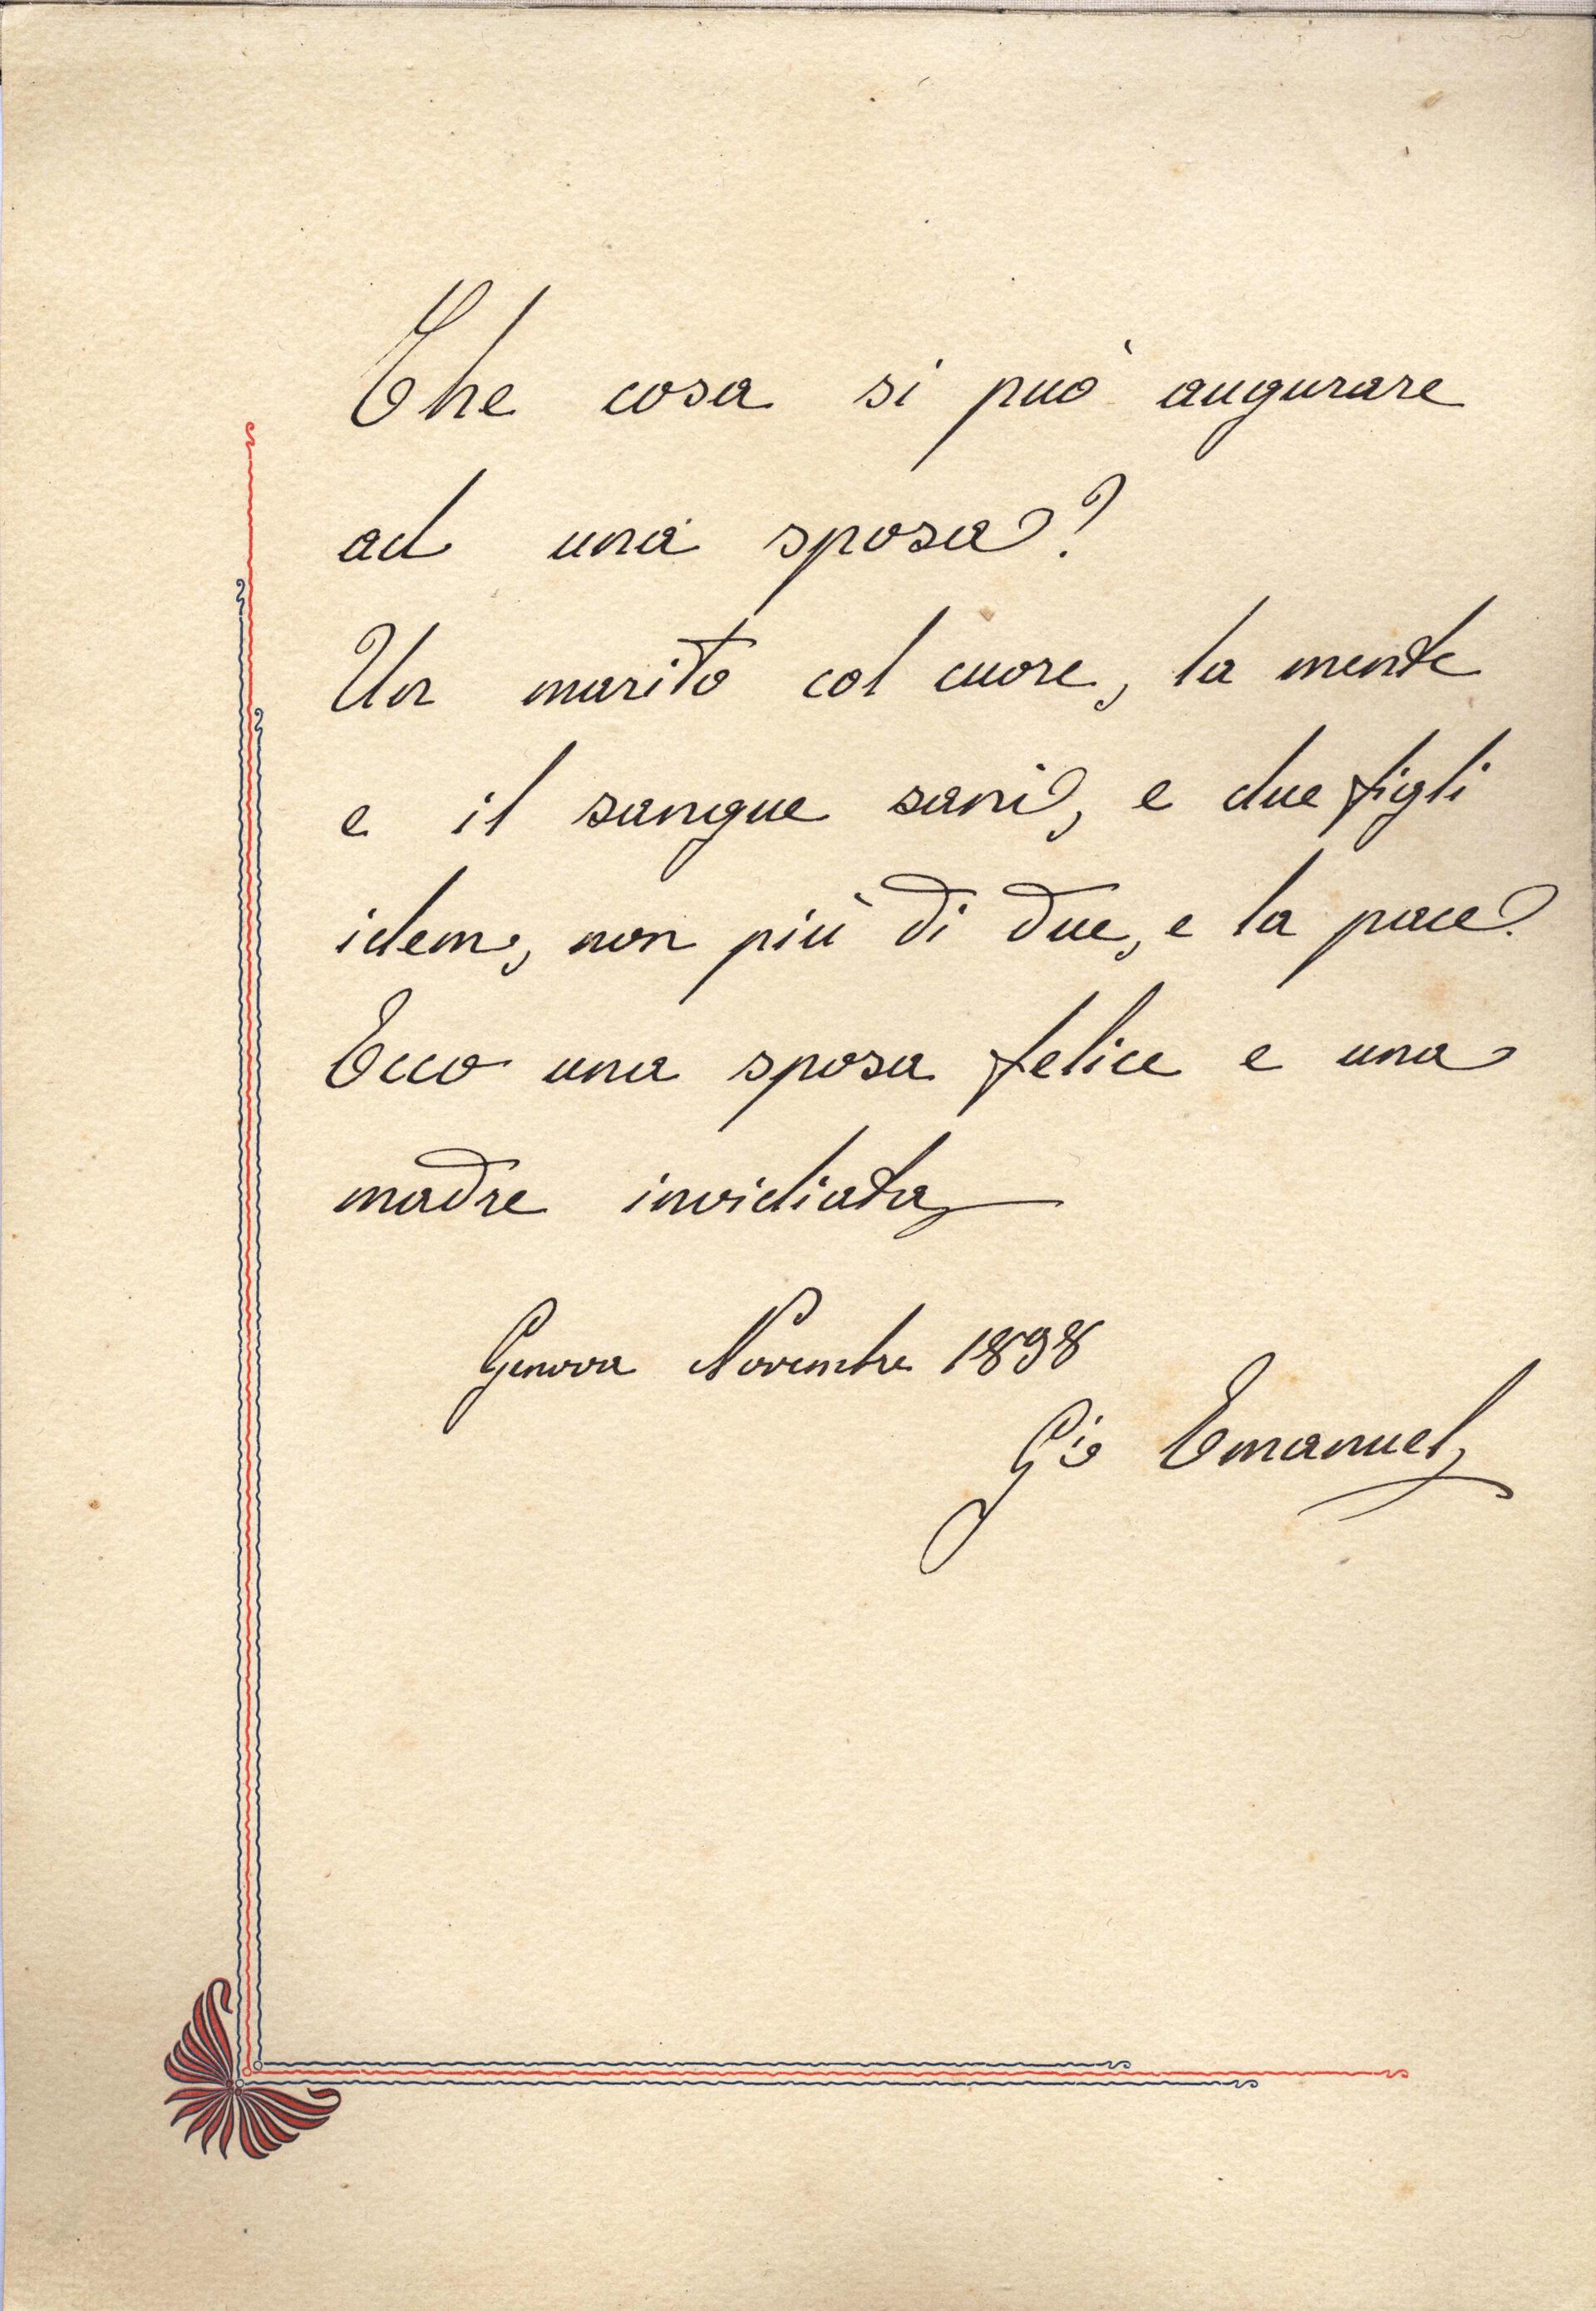 Che cosa si può augurare
ad una sposa?
Un marito col cuore, la mente
e il sangue sani, e due figli
idem, non più di due, e la pace.
Ecco una sposa felice e una
madre invidiata
Genova Novembre 1898
Gio Emanuel